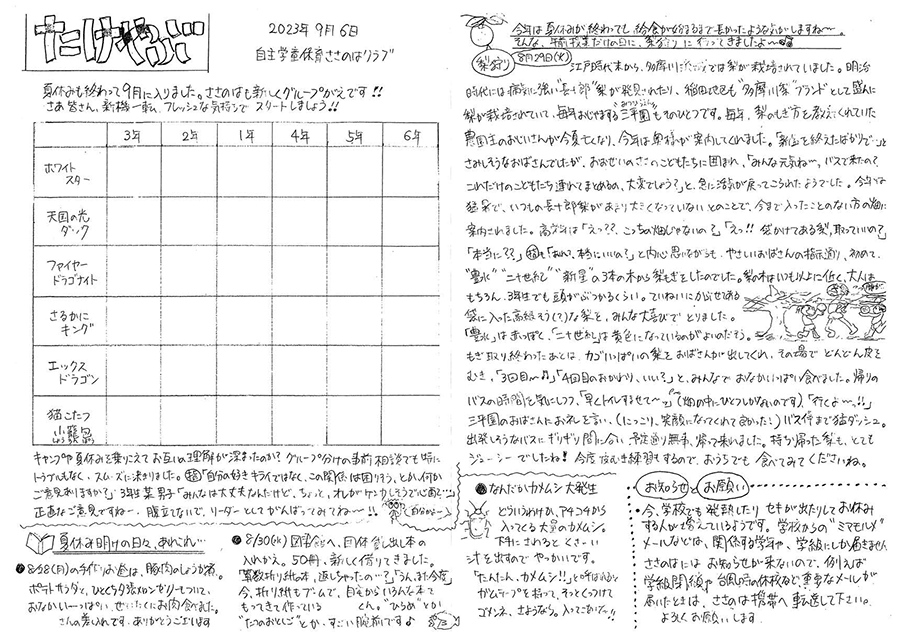 たけやぶ
2023年9月6日
自主学童保育ささのはクラブ
夏休みも終わって9月に入りました。ささのはも新しくグループがえです!!
さあ皆さん、新機一転、フレッシュな気持ちで スタートしましょう!!
3年 2年 1年 4年 5年 6年
ホワイト
スター
天国の光
ダック
ファイヤー
ドラゴナイト
さるかに
キング
エックス
ドラゴン
猫こたつ
小籠包
キャンプや夏休みを乗りこえてお互いの理解が深まったのか?グループ分けの事前相談でも特に
トラブルもなく、スムーズに決まりました。「自分の好きキライではなく、この関係は困りそう、とか、何か
ご意見ありますか?」3年生某男子「みんなは大丈夫なんだけど、ちょっと、オレがケンカしそうで心配で…」
正直なご意見ですね…。腹立てないで、リーダーとしてがんばってみてね〜!!
夏休み明けの日々、あれこれ
8/28(月)の手作りお昼は、豚肉のしょうが焼、
ポテトサラダと、ひとくち夕張メロンゼリーもついて、
おなかいーっぱい、ぜいたくにお肉食べました。
さんの差し入れです。ありがとうございます
8/30(水) 図書館へ、団体貸し出し本の
入れかえ。50冊、新しく借りてきました。
「算数折り紙の本、返しちゃったの…?」「うん、また今度」
今、折り紙もブームで、自宅からいろんな本を
もってきて作っている くん。"ひらめ"とか
"たつのおとしご"とか、すごい腕前です♪
今年は夏休みが終わっても給食が始まるまで長かったような気がしますね〜。
そんな、午前授業だけの日に、梨狩りに行ってきましたよ〜
梨狩り 8月29日(火)
江戸時代末から、多摩川では梨が栽培されていました。明治
時代には病気に強い"長十郎"梨が発見されたり、稲田地区も"多摩川梨"ブランドとして盛んに
梨が栽培されていて、毎年おじゃまする三平園もそのひとつです。毎年、梨のもぎ方を教えてくれていた
農園主のおじいさんが今夏亡くなり、今年は奥様が案内してくれました。「新盆を終えたばかりで…」と
さみしそうなおばさんでしたが、おおぜいのささのこどもたちに囲まれ、「みんな元気ね〜、バスで来たの?
これだけのこどもたち連れてまとめるの、大変でしょう?」と、急に活気が戻ってこられたようでした。今年は
猛暑で、いつもの長十郎梨があまり大きくなっていないとのことで、今まで入ったことのない方の畑に
案内されました。高学年は「えっ??、こっちの畑じゃないの?」「えっ!! 袋かけてある梨、取っていいの?」
「本当に??」「おねえ、本当にいいの?」と内心思いながらも、やさしいおばさんの指示通り、初めて、
"豊水""二十世紀""新星"の3本の木から梨もぎをしたのでした。梨の木はいつも以上に低く、大人は
もちろん、3年生でも頭がぶつかるくらい。ていねいにかぶせてある
袋に入った高級そう(?)な梨を、みんな大喜びで とりました。
「豊水」は赤っぽく、「二十世紀」は黄色になっているのがよいのだそう。
もぎ取り終わったあとは、カゴいっぱいの梨をおばさんが出してくれ、その場で どんどん皮を
むき、「3回目〜♫」「4回目のおかわり、いい?」と、みんなで おなかいっぱい食べました。帰りの
バスの時間を気にしつつ、「早くトイレすませて〜」(畑の中にひとつしかないのです)、「行くよ〜!!」
三平園のおばさんにお礼を言い、(にっこり、笑顔になってくれて良かった!)バス停まで猛ダッシュ。
出発しそうなバスにギリギリ間に合い、予定通り無事、帰って来ました。持ち帰った梨も、とても
ジューシーでしたね! 今度 皮むき練習もするので、おうちでも 食べてみてくださいね。
なんだかカメムシ大発生
どういうわけか、アキコチから
入ってくる大量のカメムシ。
下手にさわると くさーい
汁を出すので やっかいです。
「たんたん、カメムシ!!」と呼ばれると
ガムテープを持って、そっとくっつけて
ゴメンネ、さようなら。
お知らせとお願い
・今、学校でも 発熱したり セキが出たりしてお休み
する人が増えているようです。学校からの"ミマモルメ"
メールなどは、関係する学年や、学級にしか届きません。
ささのはには お知らせが来ないので、例えば
学級閉鎖や台風時の休校など、重要なメールが
届いたときは、ささのは携帯へ転送して下さい。
よろしくお願いします